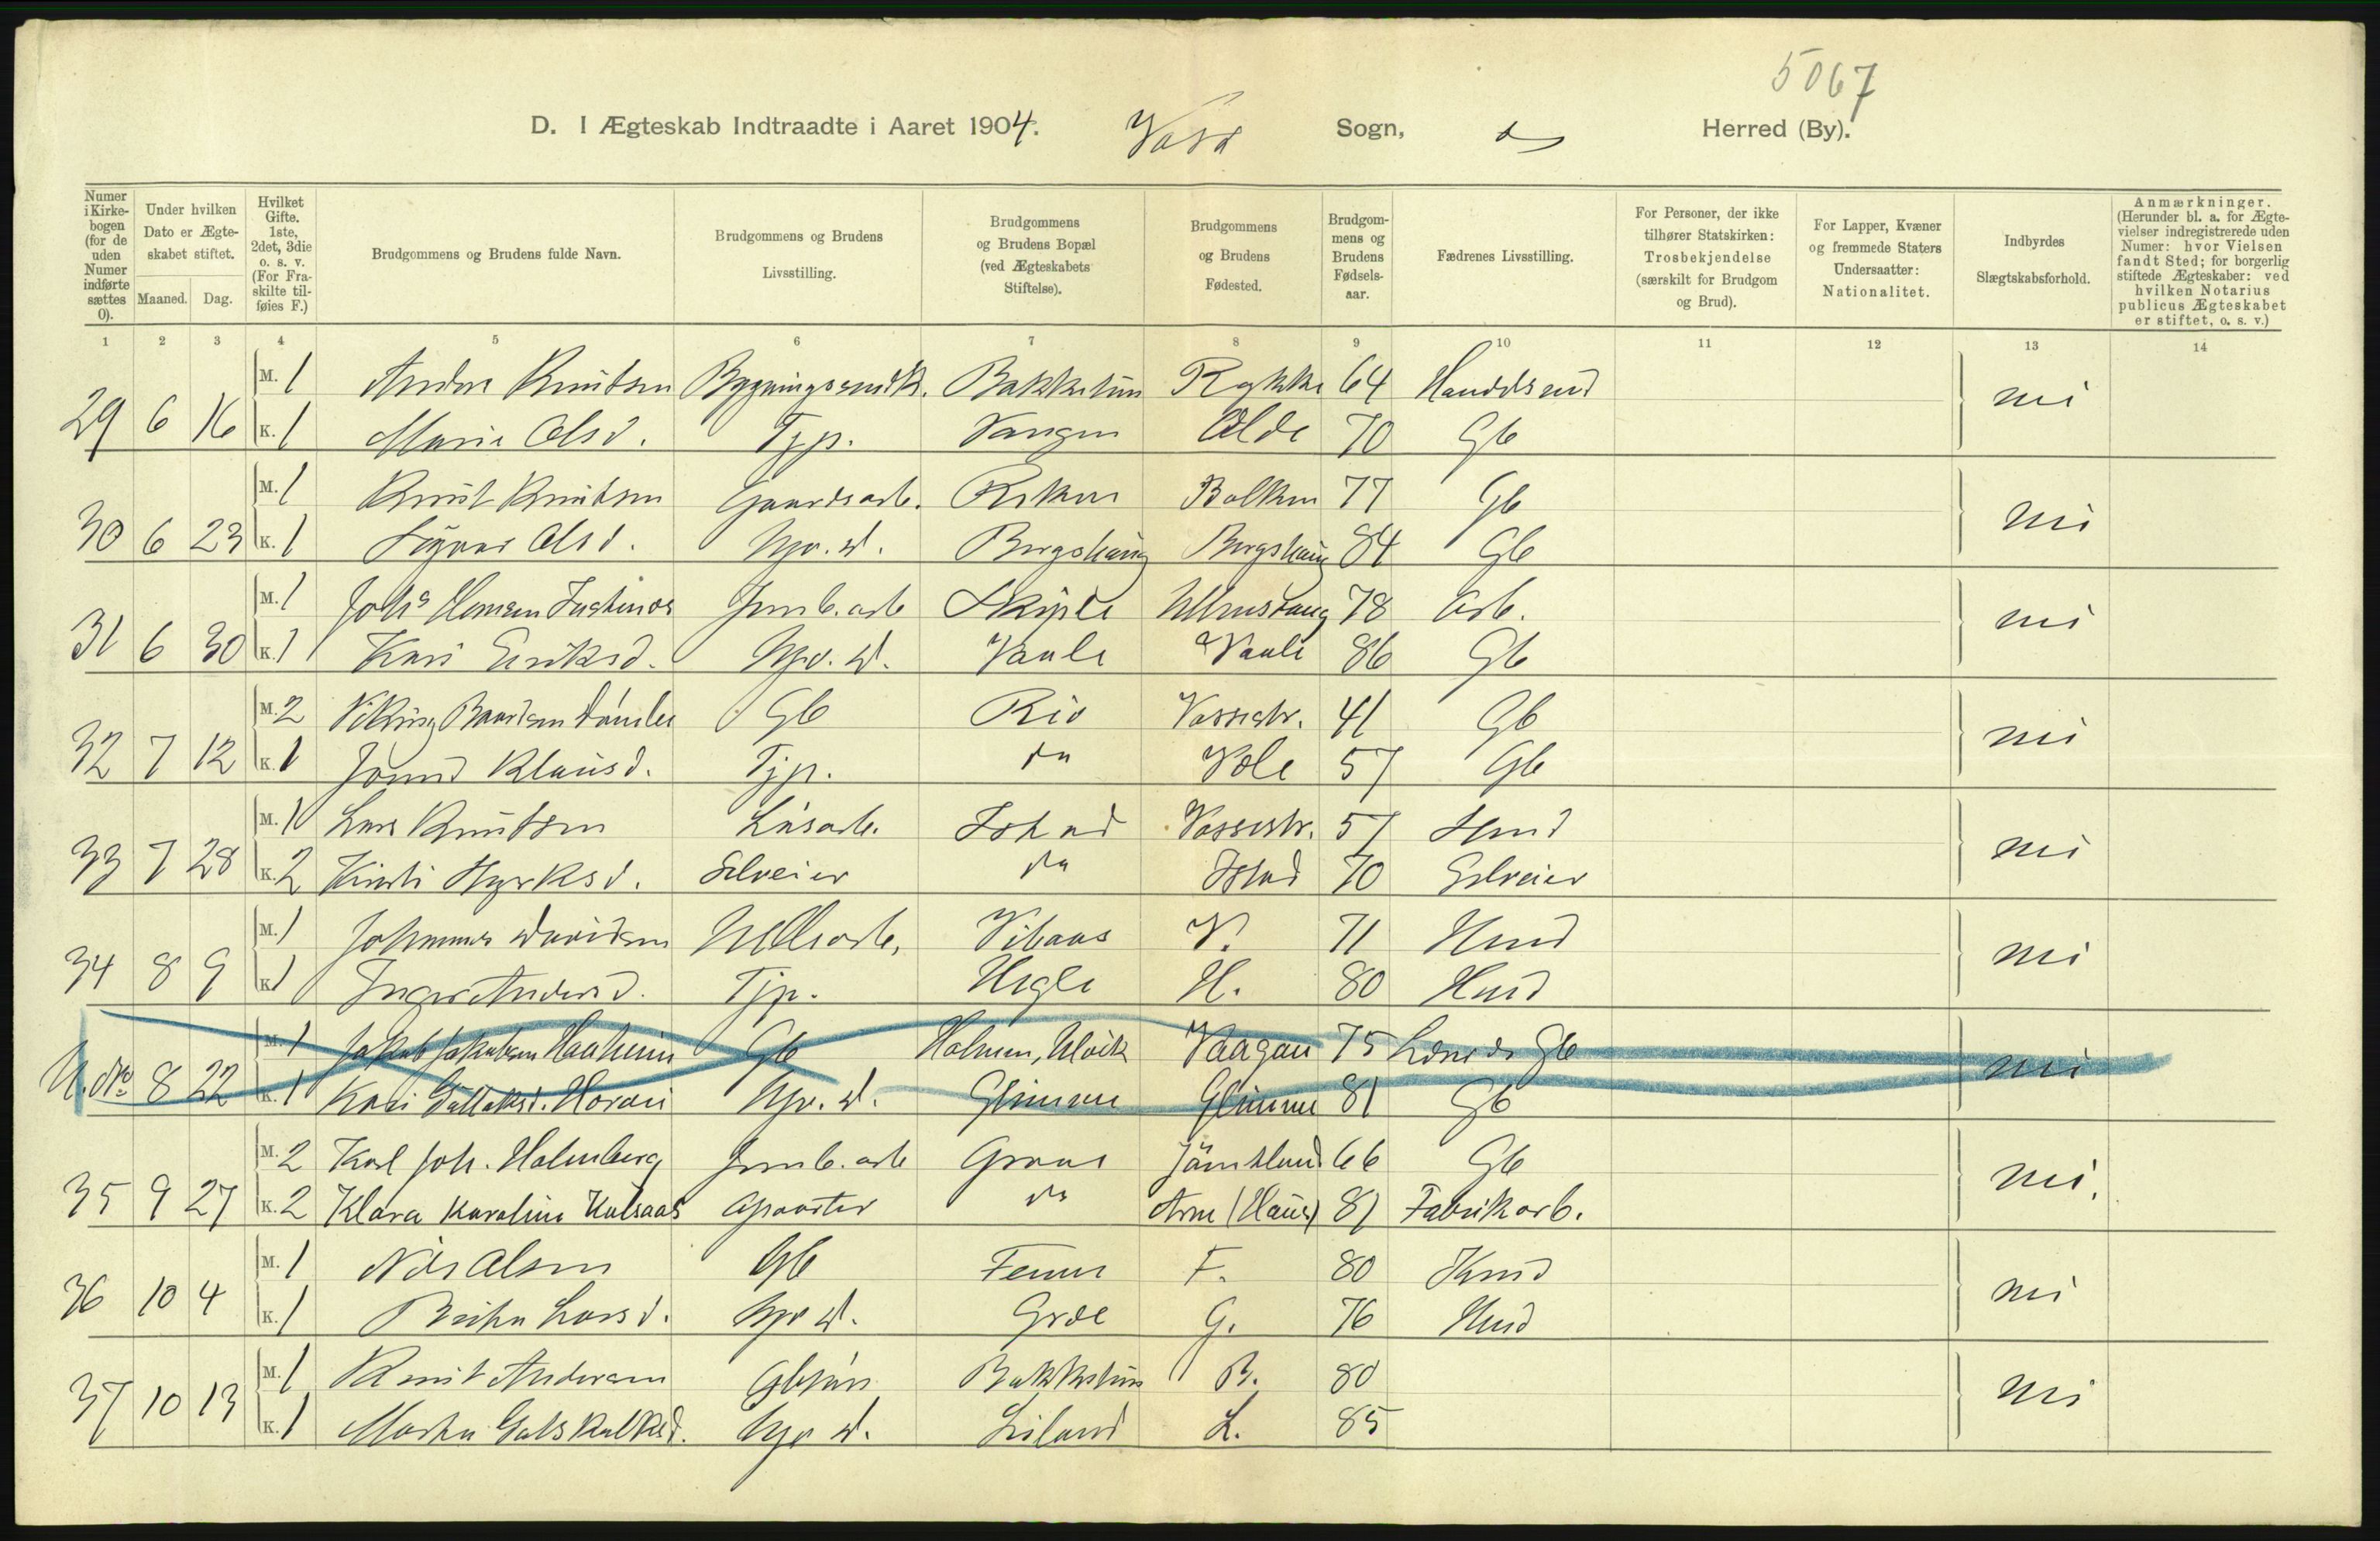 5067
D. I Ægteskab Indtraadte i Aaret 1904. Voss Sogn, Herred (By).
Numer i Kirkebogen (for de uden Numer indførte sættes 0).
Under hvilken Dato er Ægteskabet stiftet.
Maaned. Dag.
Hvilket Gifte. 1ste, 2det, 3die o. s. v. (For Fraskilte tilføies F.)
Brudgommens og Brudens fulde Navn.
Brudgommens og Brudens Livsstilling.
Brudgommens og Brudens Bopæl (ved Ægteskabets Stiftelse).
Brudgommens og Brudens Fødested.
Brudgommens og Brudens Fødselsaar.
Fædrenes Livsstilling.
For Personer, der ikke tilhører Statskirken: Trosbekjendelse (særskilt for Brudgom og Brud).
For Lapper, Kvæner og fremmede Staters Undersaatter: Nationalitet.
Indbyrdes Slægtskabsforhold.
Anmærkninger. (Herunder bl. a. for Ægtevielser indregistrerede uden Numer: hvor Vielsen fandt Sted; for borgerlig stiftede Ægteskaber: ved hvilken Notarius publicus Ægteskabet er stiftet, o. s. v.)
1 2 3 4 5 6 7 8 9 10 11 12 13 14
M. 1 Anders Knutsen Bygningssnedk. Bakketun Rokke 64 Handelsmd
29 6 16 K. 1 Marie Olsd. Tjp. Vangen 70 Gb nei
M. 1 Knut Knutsen Gaardsarb. Bolken 77 Gb
30 6 23 K. 1 Olsd. Bergshaug Bergshaug 84 Gb nei
M. 1 Johs Hansen Jernb. arb 78 Arb.
31 6 30 K. 1 Kari Eriksd. 86 Gb nei
M. 2 Viking Baardsen Gb Rio Vossestr. 41 Gb
32 7 12 K. 1 Klausd. Tjp. do 57 Gb nei
M. 1 Lars Knutsen Løsarb. Istad Vossestr. 57 Hmd
33 7 28 K. 2 Kirsti Selveier do Istad 70 Selveier nei
M. 1 Johannes Davidsen Vibaas V. 71 Hmd
34 8 9 K. 1 Inger Andersd. Tjp. Hegle H. 80 Hmd nei
M. 1 Jakob Jakobsen Haaheim Gb Holmen, Ulvik Vaagan 75 Gb
U. No 8 22 K. 1 Kari Horvei Glimme Glimme 81 Gb nei
M. 2 Karl Joh. Holmberg Jernb. arb Graue Jämtland 66 Gb
35 9 27 K. 2 Klara Karoline Kalsaas do Arne (Haus) 81 Fabrikarb. nei.
M. 1 Nils Olsen Gb Fenne F. 80 Hmd
36 10 4 K. 1 Brita Larsd. G. 76 Hmd nei
M. 1 Knut Andersen Gbsøn Bakketun B. 80
37 10 13 K. 1 Marta Liland L. 85 nei